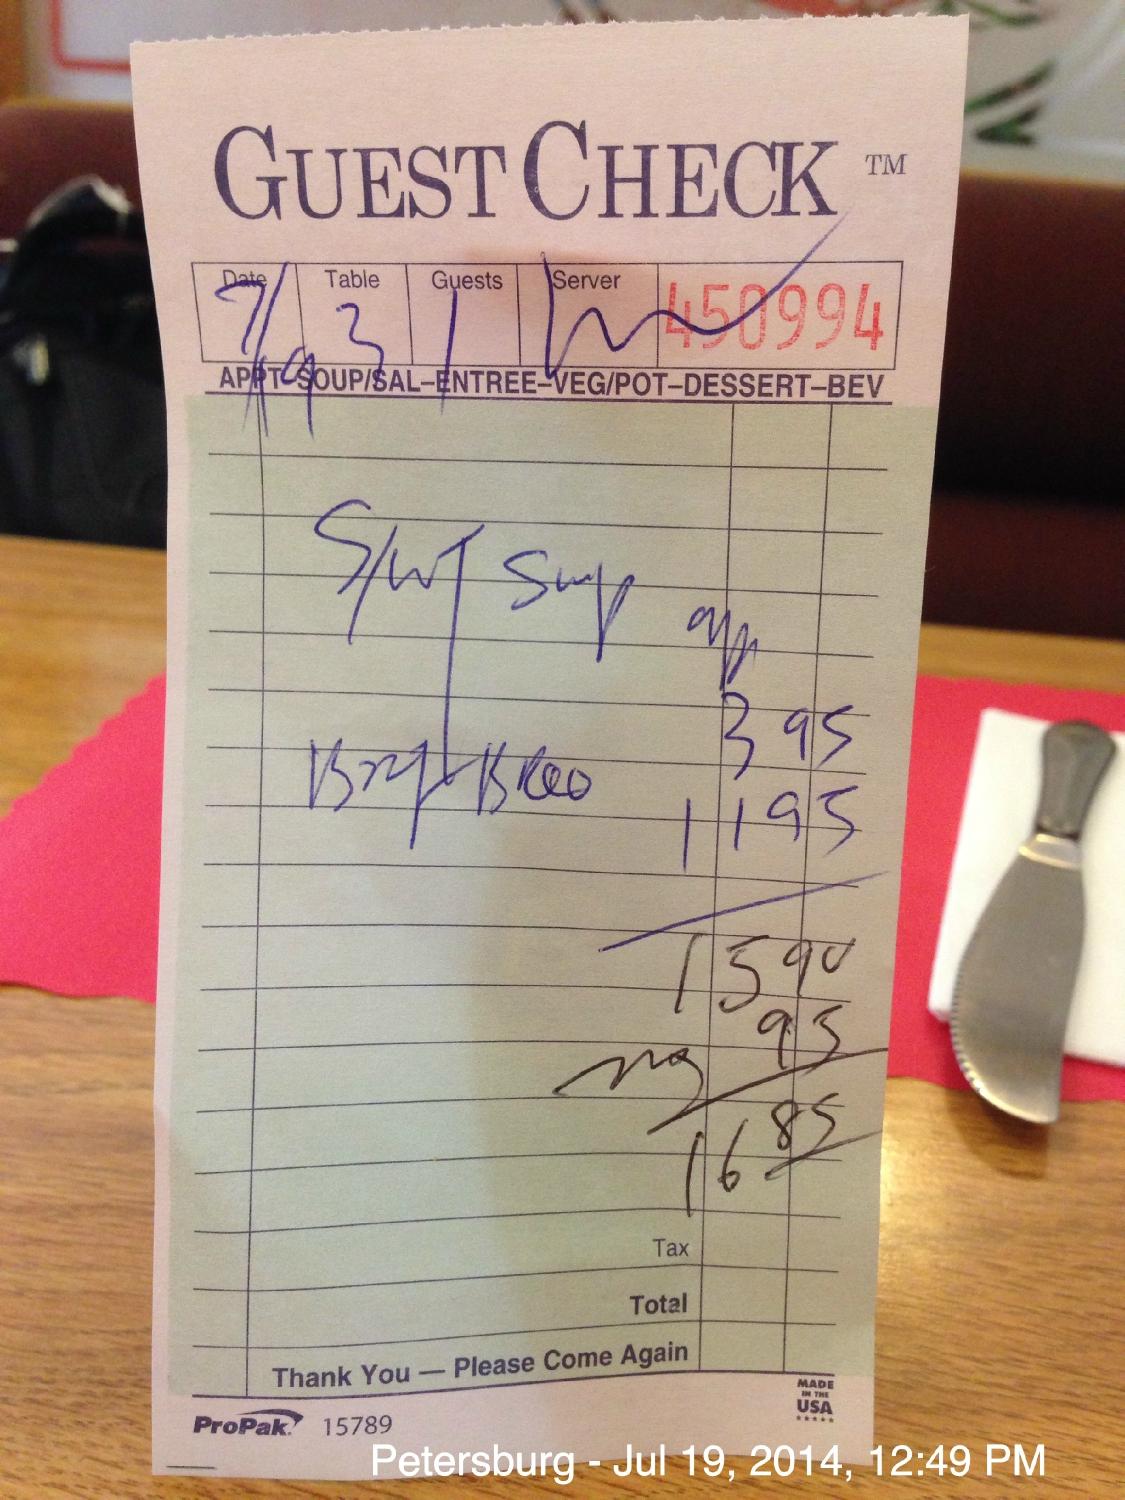 GUEST CHECK ™
Date Table Guests Server
7/19 3 1 450994
APPT-SOUP/SAL-ENTREE-VEG/POT-DESSERT-BEV
S/W Soup
app
3 95
Broo
11 95
15 90
95
16 85
Tax
Total
Thank You — Please Come Again
MADE IN THE USA
ProPak 15789
Petersburg - Jul 19, 2014, 12:49 PM